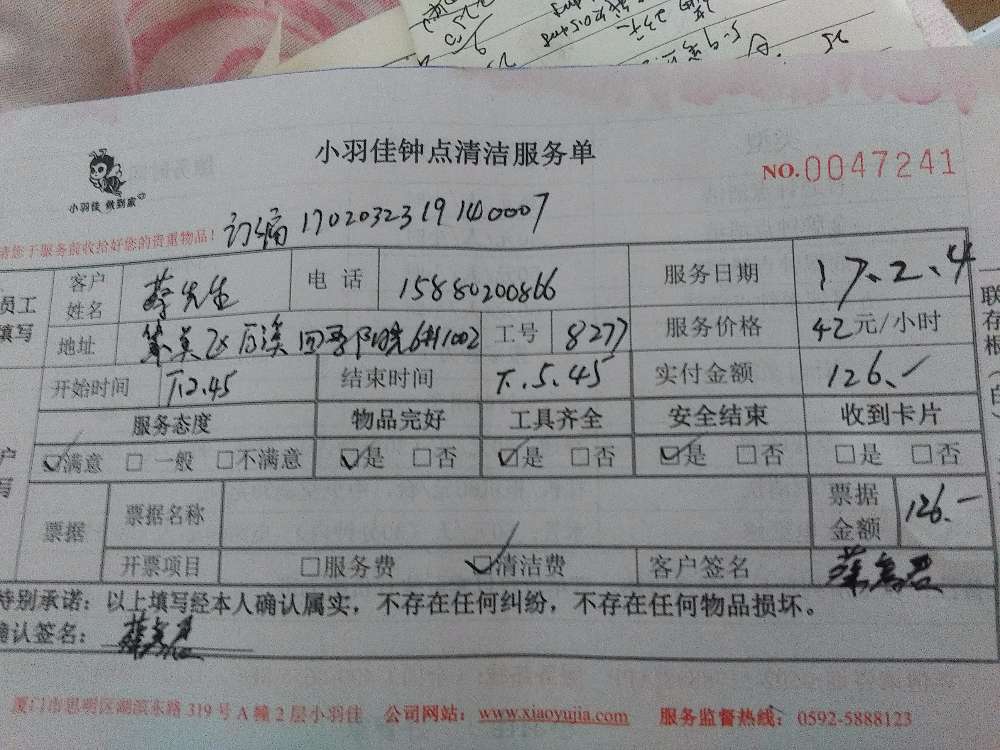 小羽佳钟点清洁服务单
NO.0047241
小羽佳 做到家
订编 1702032319140007
请您于服务前收拾好您的贵重物品！
员工填写 客户姓名 蔡先生 电话 15880200866 服务日期 17.2.4
地址 6#1002 工号 8277 服务价格 42元/小时
开始时间 下.2.45 结束时间 下.5.45 实付金额 126.-
服务态度 物品完好 工具齐全 安全结束 收到卡片
☑满意 □一般 □不满意 ☑是 □否 ☑是 □否 ☑是 □否 □是 □否
票据 票据名称 票据金额 126.-
开票项目 □服务费 ☑清洁费 客户签名
特别承诺：以上填写经本人确认属实，不存在任何纠纷，不存在任何物品损坏。
确认签名：
厦门市思明区湖滨东路319号A幢2层小羽佳 公司网站：www.xiaoyujia.com 服务监督热线：0592-5888123